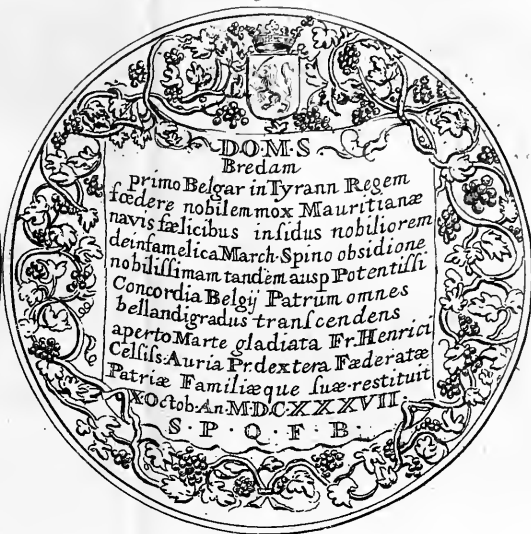 D·O·M·S
Bredam
primo Belgar in Tyrann Regem
fœdere nobilem mox Mauritianæ
navis fælicibus insidus nobiliorem
dein famelica March·Spino obsidione
nobilissimam tandem ausp Potentissi
Concordia Belgij Patrum omnes
bellandi gradus transcendens
aperto Marte gladiata Fr. Henrici
Celsiss: Auria Pr. dextera Fæderatæ
Patriæ Familiæque suæ·restituit
X Octob·An·M·D·C·XXXVII·
S · P · Q · F · B ·